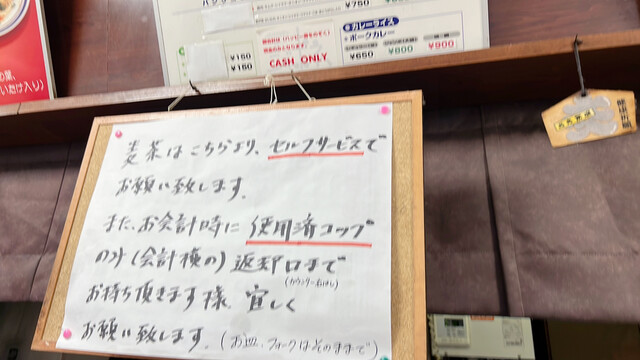 ¥750
カレーライス
ポークカレー
¥650 ¥800 ¥900
¥150
¥150
CASH ONLY
麦茶はこちらより、セルフサービスで
お願い致します。
また、お会計時に使用済コップ
のみ(会計横の)返却口まで
(カウンター右はし)
お持ち頂きます様、宜しく
お願い致します。(お皿、フォークはそのままで)